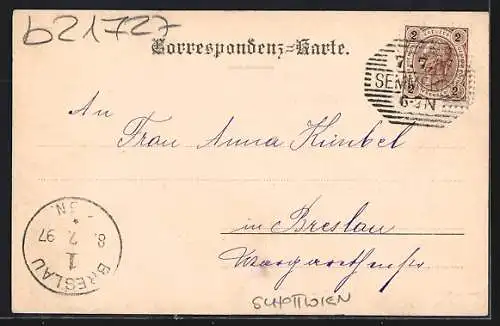 b21727
Correspondenz=Karte.
2 2
7 7
SEMM
6-9N
2 2
An
Frau Anna Künbel
in Breslau
Margarethenstr
BRESLAU
1
8. 7. 97
*
N.
SCHOTTWIEN